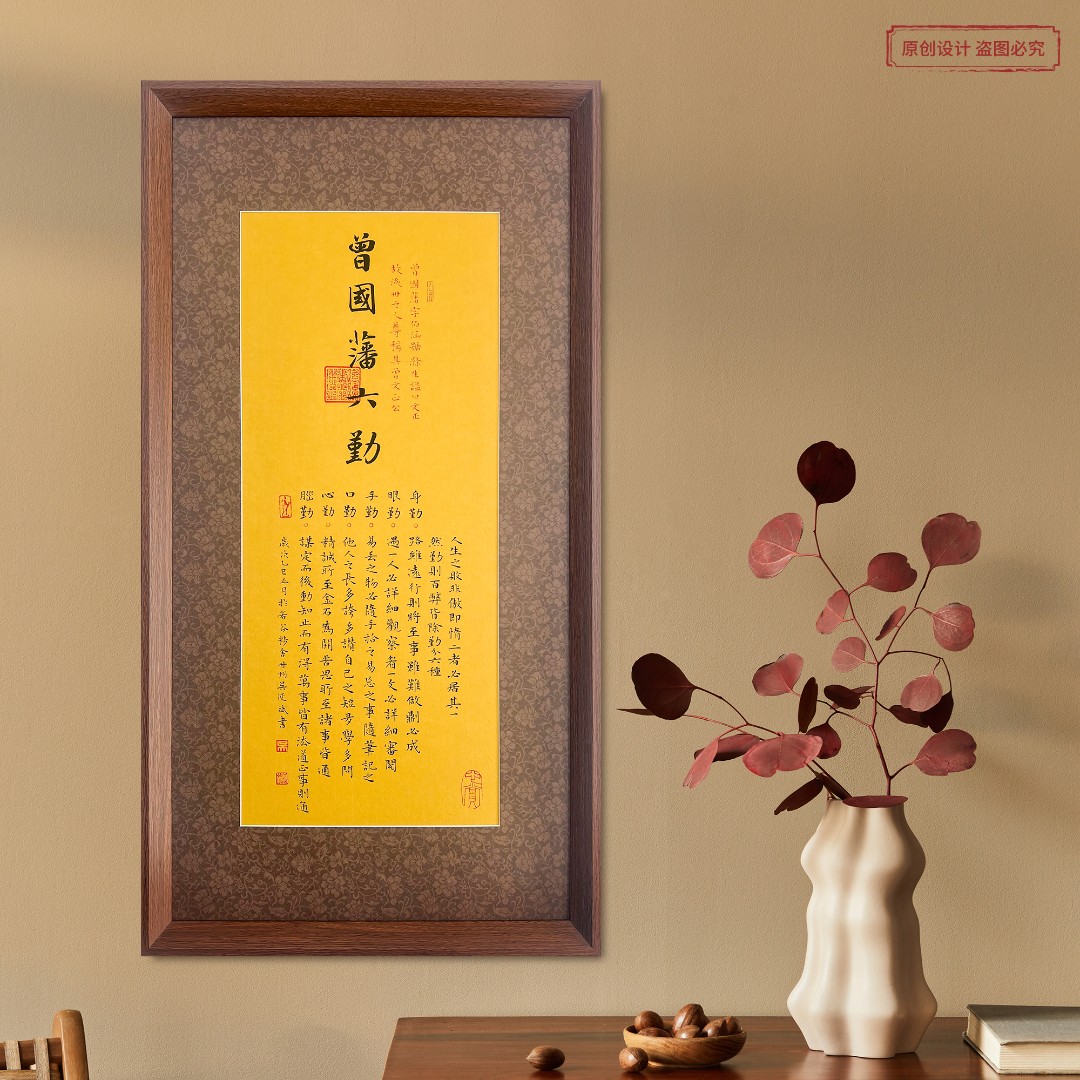 原创设计 盗图必究
曾國藩六勤
曾國藩字伯涵號滌生謚曰文正
故後世之人尊稱其曾文正公
人生之敗非傲即惰二者必居其一
然勤則百弊皆除勤分六種
身勤。路雖遠行則將至事雖難做則必成
眼勤。遇一人必詳細觀察看一文必詳細審閱
手勤。易丟之物必隨手拾之易忘之事隨筆記之
口勤。他人之長多誇多讚自己之短多學多問
心勤。精誠所至金石為開苦思所至諸事皆通
腦勤。謀定而後動知止而有得萬事皆有法道正事則通